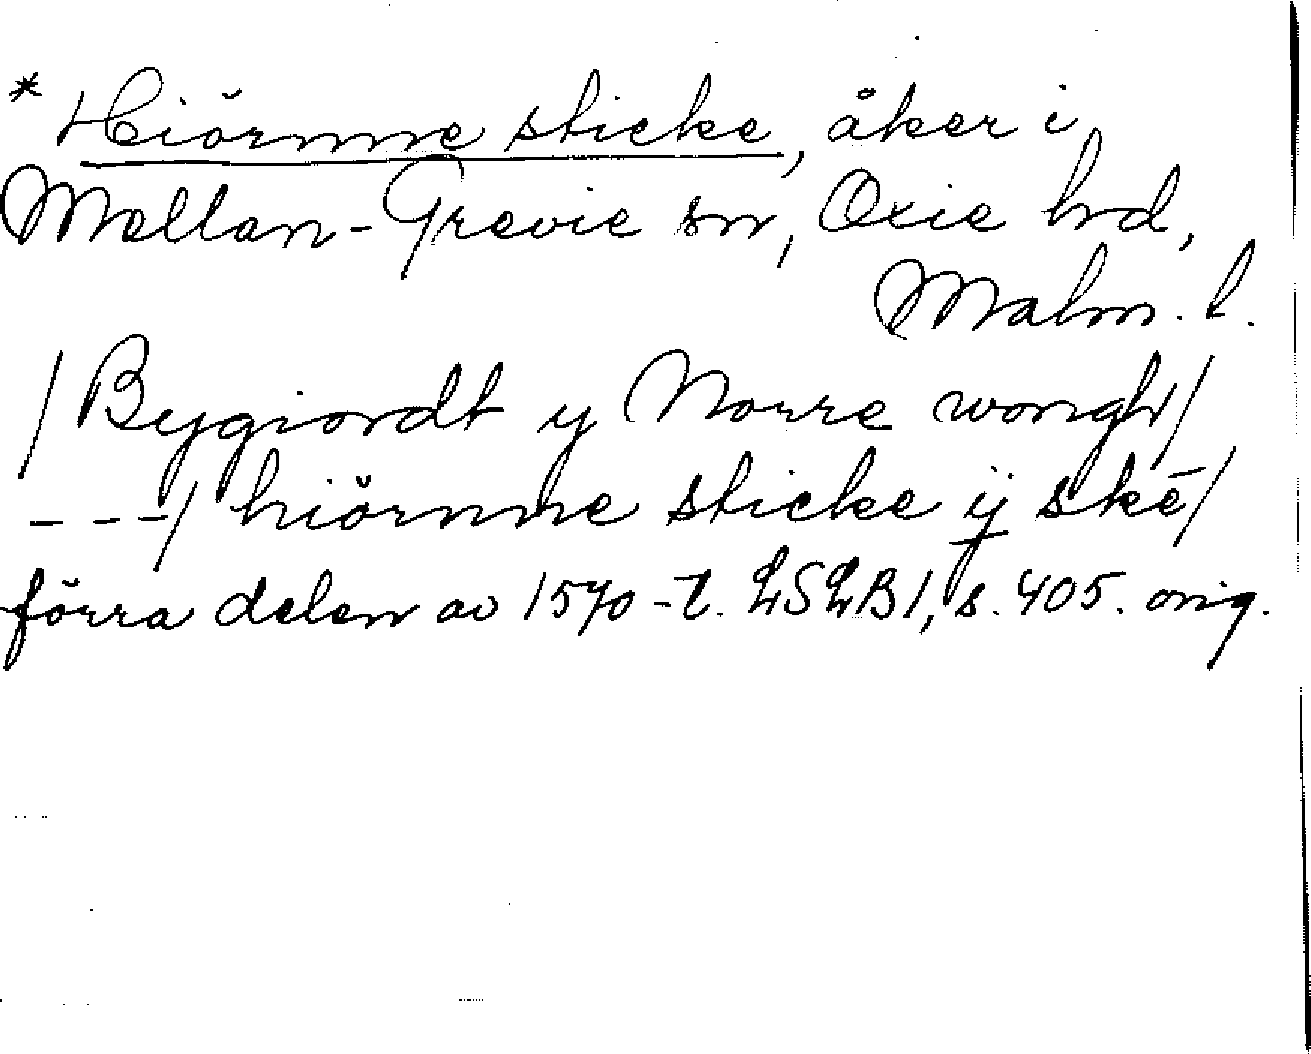 * Hiörnme sticke, åker i
Mellan-Grevie sn, Oxie hd,
Malm. l.
/Bygiordt y Norre wongh/
---/ hiörnme sticke ij skē/
förra delen av 1570-t. LSLB 1, s. 405. orig.